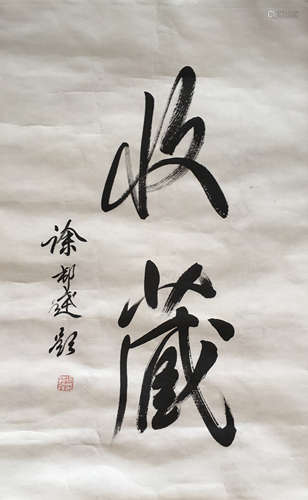 收藏
徐邦达题